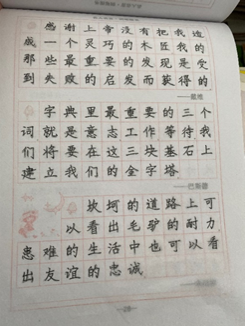 感谢上帝没有把我造
成一个灵巧的木匠我的
那些最重要的发现是受
到失败的启发而获得的
——戴维
字典里最重要的三个
词就是意志工作等待我
们将要在这三块基石上
建立我们的金字塔
——巴斯德
坎坷的道路上可
以看出毛驴的耐力
患难的生活中也可以看
出友谊的忠诚